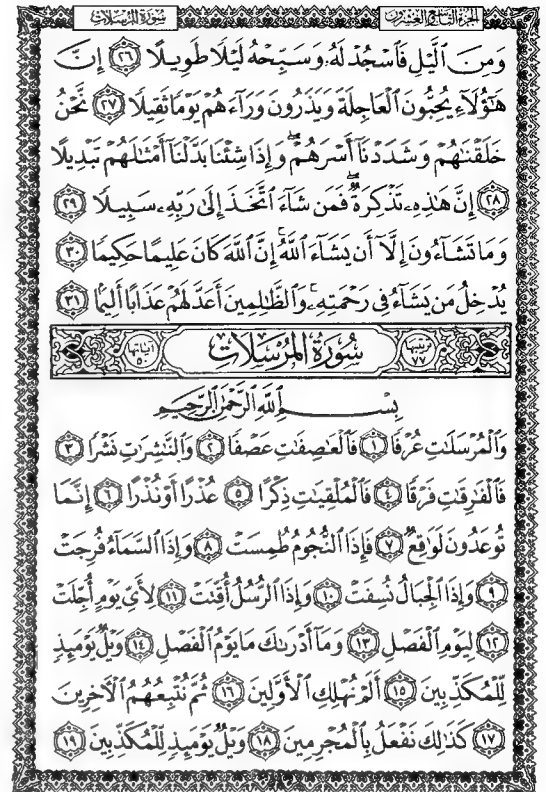 سورة المرسلات الجزء التاسع والعشرون
وَمِنَ ٱلَّيْلِ فَٱسْجُدْ لَهُۥ وَسَبِّحْهُ لَيْلًا طَوِيلًا ٢٦ إِنَّ
هَٰٓؤُلَآءِ يُحِبُّونَ ٱلْعَاجِلَةَ وَيَذَرُونَ وَرَآءَهُمْ يَوْمًا ثَقِيلًا ٢٧ نَّحْنُ
خَلَقْنَٰهُمْ وَشَدَدْنَآ أَسْرَهُمْ ۖ وَإِذَا شِئْنَا بَدَّلْنَآ أَمْثَٰلَهُمْ تَبْدِيلًا
٢٨ إِنَّ هَٰذِهِۦ تَذْكِرَةٌ ۖ فَمَن شَآءَ ٱتَّخَذَ إِلَىٰ رَبِّهِۦ سَبِيلًا ٢٩
وَمَا تَشَآءُونَ إِلَّآ أَن يَشَآءَ ٱللَّهُ ۚ إِنَّ ٱللَّهَ كَانَ عَلِيمًا حَكِيمًا ٣٠
يُدْخِلُ مَن يَشَآءُ فِى رَحْمَتِهِۦ ۚ وَٱلظَّٰلِمِينَ أَعَدَّ لَهُمْ عَذَابًا أَلِيمًۢا ٣١
ترتيبها ٧٧ سورة المرسلات آياتها ٥٠
بِسْمِ ٱللَّهِ ٱلرَّحْمَٰنِ ٱلرَّحِيمِ
وَٱلْمُرْسَلَٰتِ عُرْفًا ١ فَٱلْعَٰصِفَٰتِ عَصْفًا ٢ وَٱلنَّٰشِرَٰتِ نَشْرًا ٣
فَٱلْفَٰرِقَٰتِ فَرْقًا ٤ فَٱلْمُلْقِيَٰتِ ذِكْرًا ٥ عُذْرًا أَوْ نُذْرًا ٦ إِنَّمَا
تُوعَدُونَ لَوَٰقِعٌ ٧ فَإِذَا ٱلنُّجُومُ طُمِسَتْ ٨ وَإِذَا ٱلسَّمَآءُ فُرِجَتْ
٩ وَإِذَا ٱلْجِبَالُ نُسِفَتْ ١٠ وَإِذَا ٱلرُّسُلُ أُقِّتَتْ ١١ لِأَىِّ يَوْمٍ أُجِّلَتْ
١٢ لِيَوْمِ ٱلْفَصْلِ ١٣ وَمَآ أَدْرَىٰكَ مَا يَوْمُ ٱلْفَصْلِ ١٤ وَيْلٌ يَوْمَئِذٍ
لِّلْمُكَذِّبِينَ ١٥ أَلَمْ نُهْلِكِ ٱلْأَوَّلِينَ ١٦ ثُمَّ نُتْبِعُهُمُ ٱلْءَاخِرِينَ
١٧ كَذَٰلِكَ نَفْعَلُ بِٱلْمُجْرِمِينَ ١٨ وَيْلٌ يَوْمَئِذٍ لِّلْمُكَذِّبِينَ ١٩